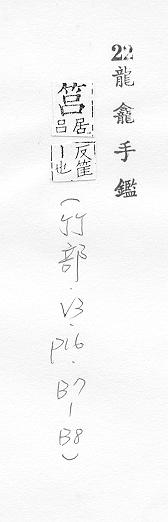 22龍龕手鑑
筥居呂反筐丨也(竹部.V3.p16.B7-B8)